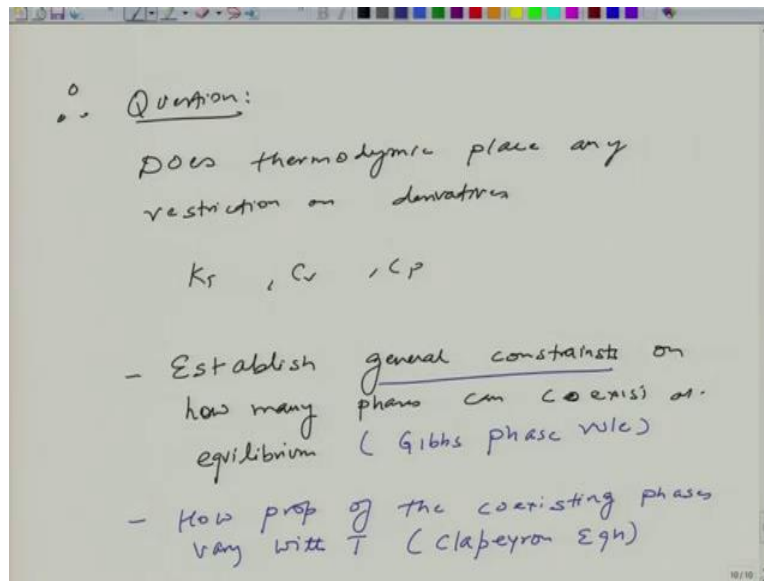 ∴ Question:
Does thermodymic place any
restriction on derivatives
K_T , C_v , C_P
- Establish general constraints on
how many phases can coexist at
equilibrium ( Gibbs phase rule)
- How prop of the coexisting phases
vary with T ( Clapeyron Eqn)
10/10